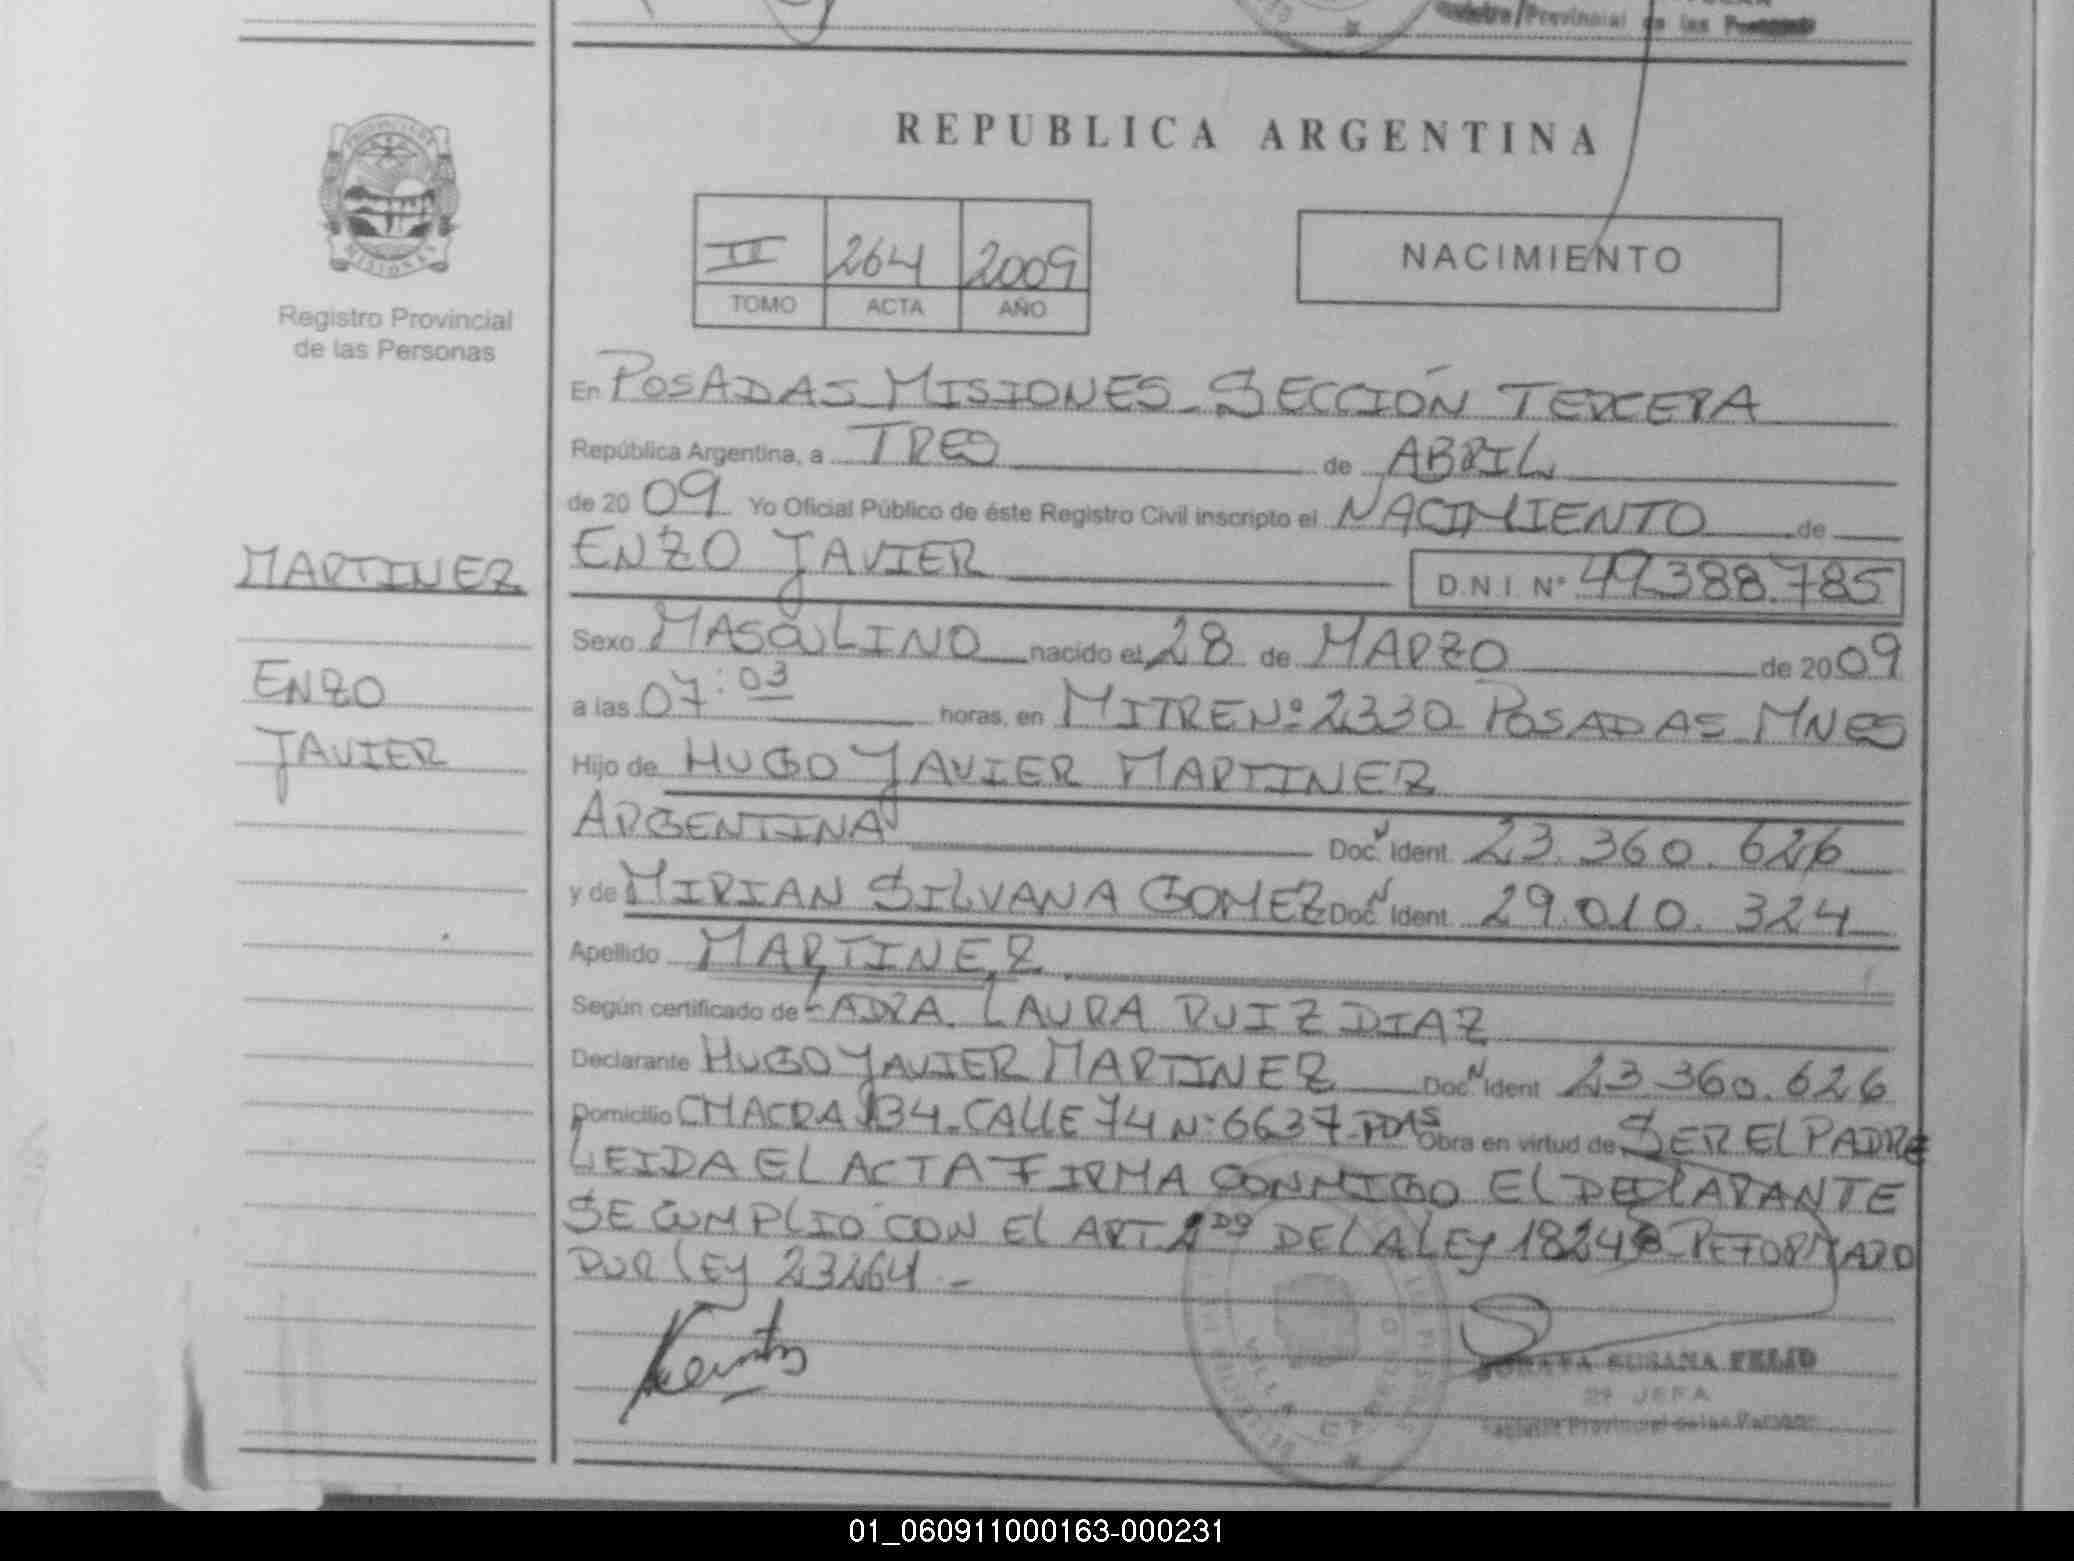 Registro Provincial de las Personas
REPUBLICA ARGENTINA
II 264 2009
TOMO ACTA AÑO
NACIMIENTO
PROVINCIA DE
MISIONES
Registro Provincial
de las Personas
En POSADAS MISIONES - SECCIÓN TERCERA
República Argentina, a TRES de ABRIL
de 20 09 Yo Oficial Público de éste Registro Civil inscripto el NACIMIENTO de
ENZO JAVIER D.N.I. Nº 49.388.785
MARTINEZ
ENZO
JAVIER
Sexo MASCULINO nacido el 28 de MARZO de 20 09
a las 07:03 horas, en MITRE Nº 2330 POSADAS MNES
Hijo de HUGO JAVIER MARTINEZ
ARGENTINA Doc. Ident. 23.360.626
y de MIRIAN SILVANA GOMEZ Doc. Ident. 29.010.324
Apellido MARTINEZ
Según certificado de LADRA. LAURA RUIZ DIAZ
Declarante HUGO JAVIER MARTINEZ Doc. Ident 23.360.626
Domicilio CHACRA 134 - CALLE 74 Nº 6637 - PDAS Obra en virtud de SER EL PADRE
LEIDA EL ACTA FIRMA CONMIGO EL DECLARANTE
SE CUMPLIO CON EL ART. 2DO DE LA LEY 18248 REFORMADO
POR LEY 23264 -
SUSANA FELID
2º JEFA
Registro Provincial de las Personas
01_060911000163-000231